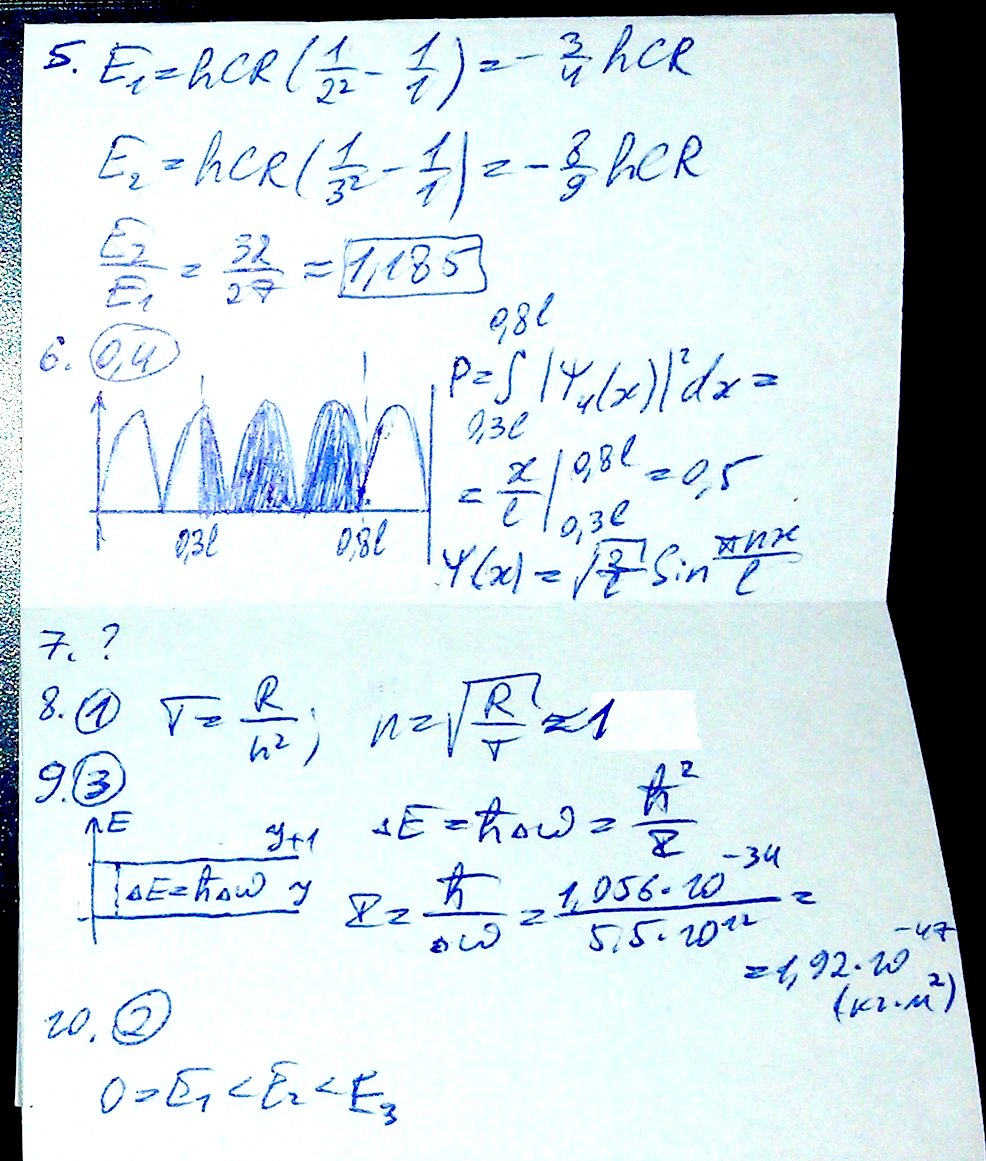 5. E₁ = hCR (1/2² - 1/1) = - 3/4 hCR
E₂ = hCR (1/3² - 1/1) = - 8/9 hCR
E₂/E₁ = 32/27 = 1,185
6. 0,4
P = ∫ 0,3l 0,8l |Ψ₄(x)|² dx =
= x/l | 0,8l 0,3l = 0,5
0,3l 0,8l
Ψ(x) = √(2/l) Sin πnx/l
7. ?
8. ① T = R/n² ; n = √(R/T) = 1
9. ③
E
y+1
ΔE = ħΔω y
ΔE = ħΔω = ħ²/I
I = ħ/Δω = 1,056·10⁻³⁴/5,5·10¹² =
= 1,92·10⁻⁴⁷
(кг·м²)
10. ②
0 = E₁ < E₂ < E₃